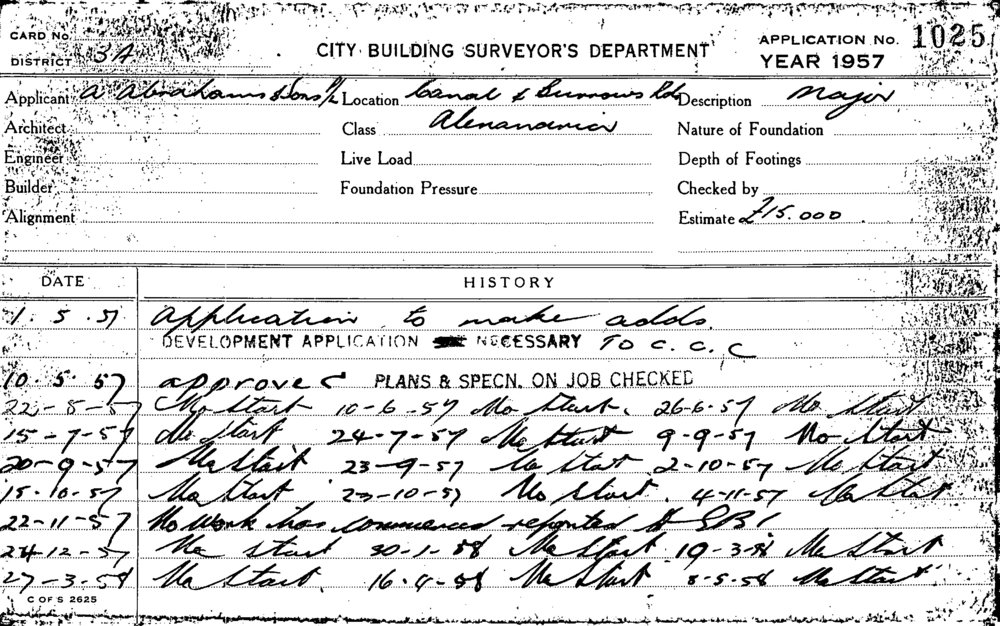 CARD No.
DISTRICT 3A
CITY BUILDING SURVEYOR'S DEPARTMENT
APPLICATION No. 1025
YEAR 1957
Applicant A Abrahams & Sons P/L Location Canal & Burrows Rds Description Major
Architect Class Alexandria Nature of Foundation
Engineer Live Load Depth of Footings
Builder Foundation Pressure Checked by
Alignment Estimate £15.000
DATE HISTORY
1.5.57 Application to make adds.
DEVELOPMENT APPLICATION NECESSARY TO C.C.C
10.5.57 approved PLANS & SPECN. ON JOB CHECKED
22-5-57 No Start 10-6-57 No Start. 26-6-57 No Start
15-7-57 No Start 24-7-57 No Start 9-9-57 No Start
20-9-57 No Start 23-9-57 No Start 2-10-57 No Start
15-10-57 No Start 23-10-57 No Start. 4-11-57 No Start
22-11-57 No Work has commenced reported to SBI
24-12-57 No start 30-1-58 No Start 19-3-58 No Start
27-3-58 No Start 16-4-58 No Start 8-5-58 No Start
C OF S 2625